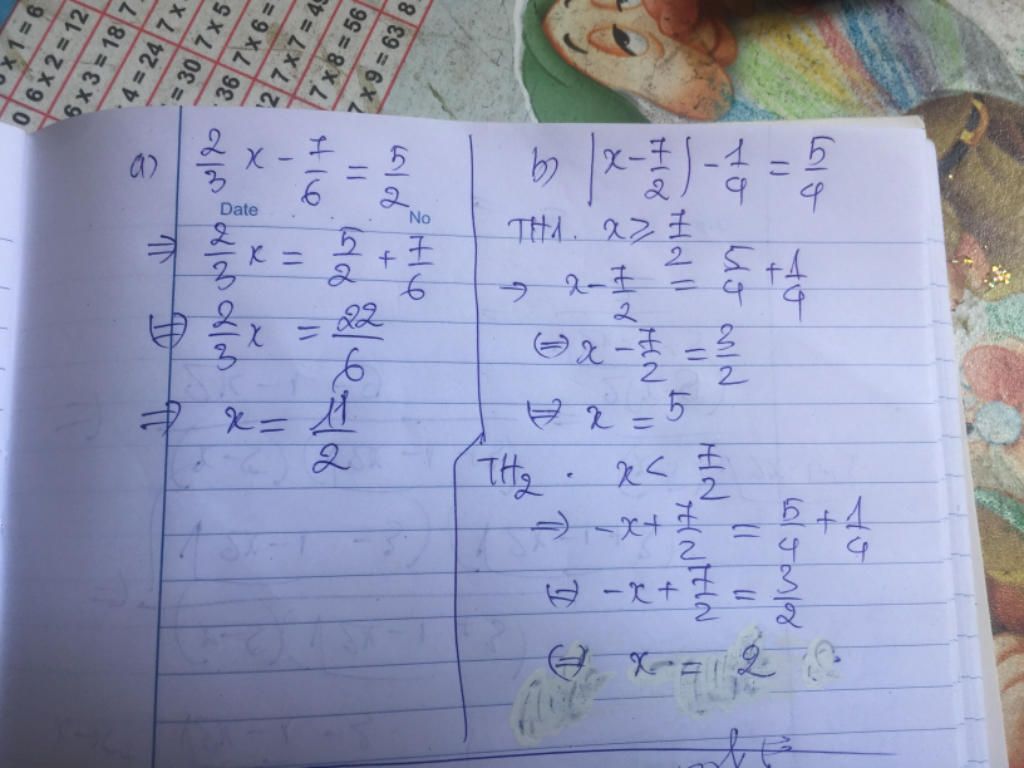 x 1 = 6
0 6 x 2 = 12
6 x 3 = 18
4 = 24
= 30
36
7 x
7 x 5
7 x 6 =
7 x 7 = 49
7 x 8 = 56
7 x 9 = 63
8
8
a) 2/3 x - 7/6 = 5/2
Date No
⇒ 2/3 x = 5/2 + 7/6
⇔ 2/3 x = 22/6
⇒ x = 11/2
b) |x - 7/2| - 1/4 = 5/4
TH1. x ≥ 7/2
→ x - 7/2 = 5/4 + 1/4
⇔ x - 7/2 = 3/2
⇔ x = 5
TH2 . x < 7/2
⇒ -x + 7/2 = 5/4 + 1/4
⇔ -x + 7/2 = 3/2
⇔ x = 2